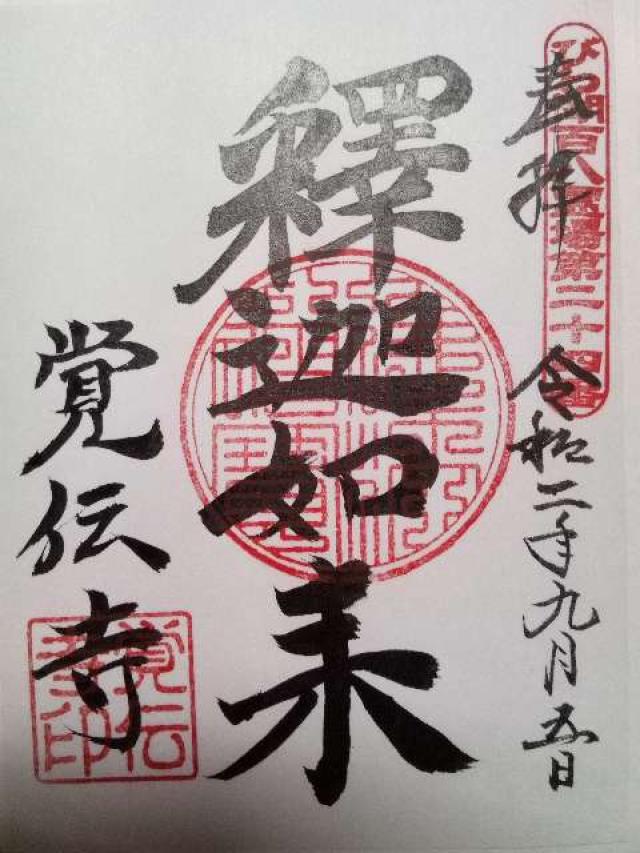 びっ門百八霊場第二十四番
奉拝
令和二年九月五日
釋迦如来
覚伝寺
覚伝寺印